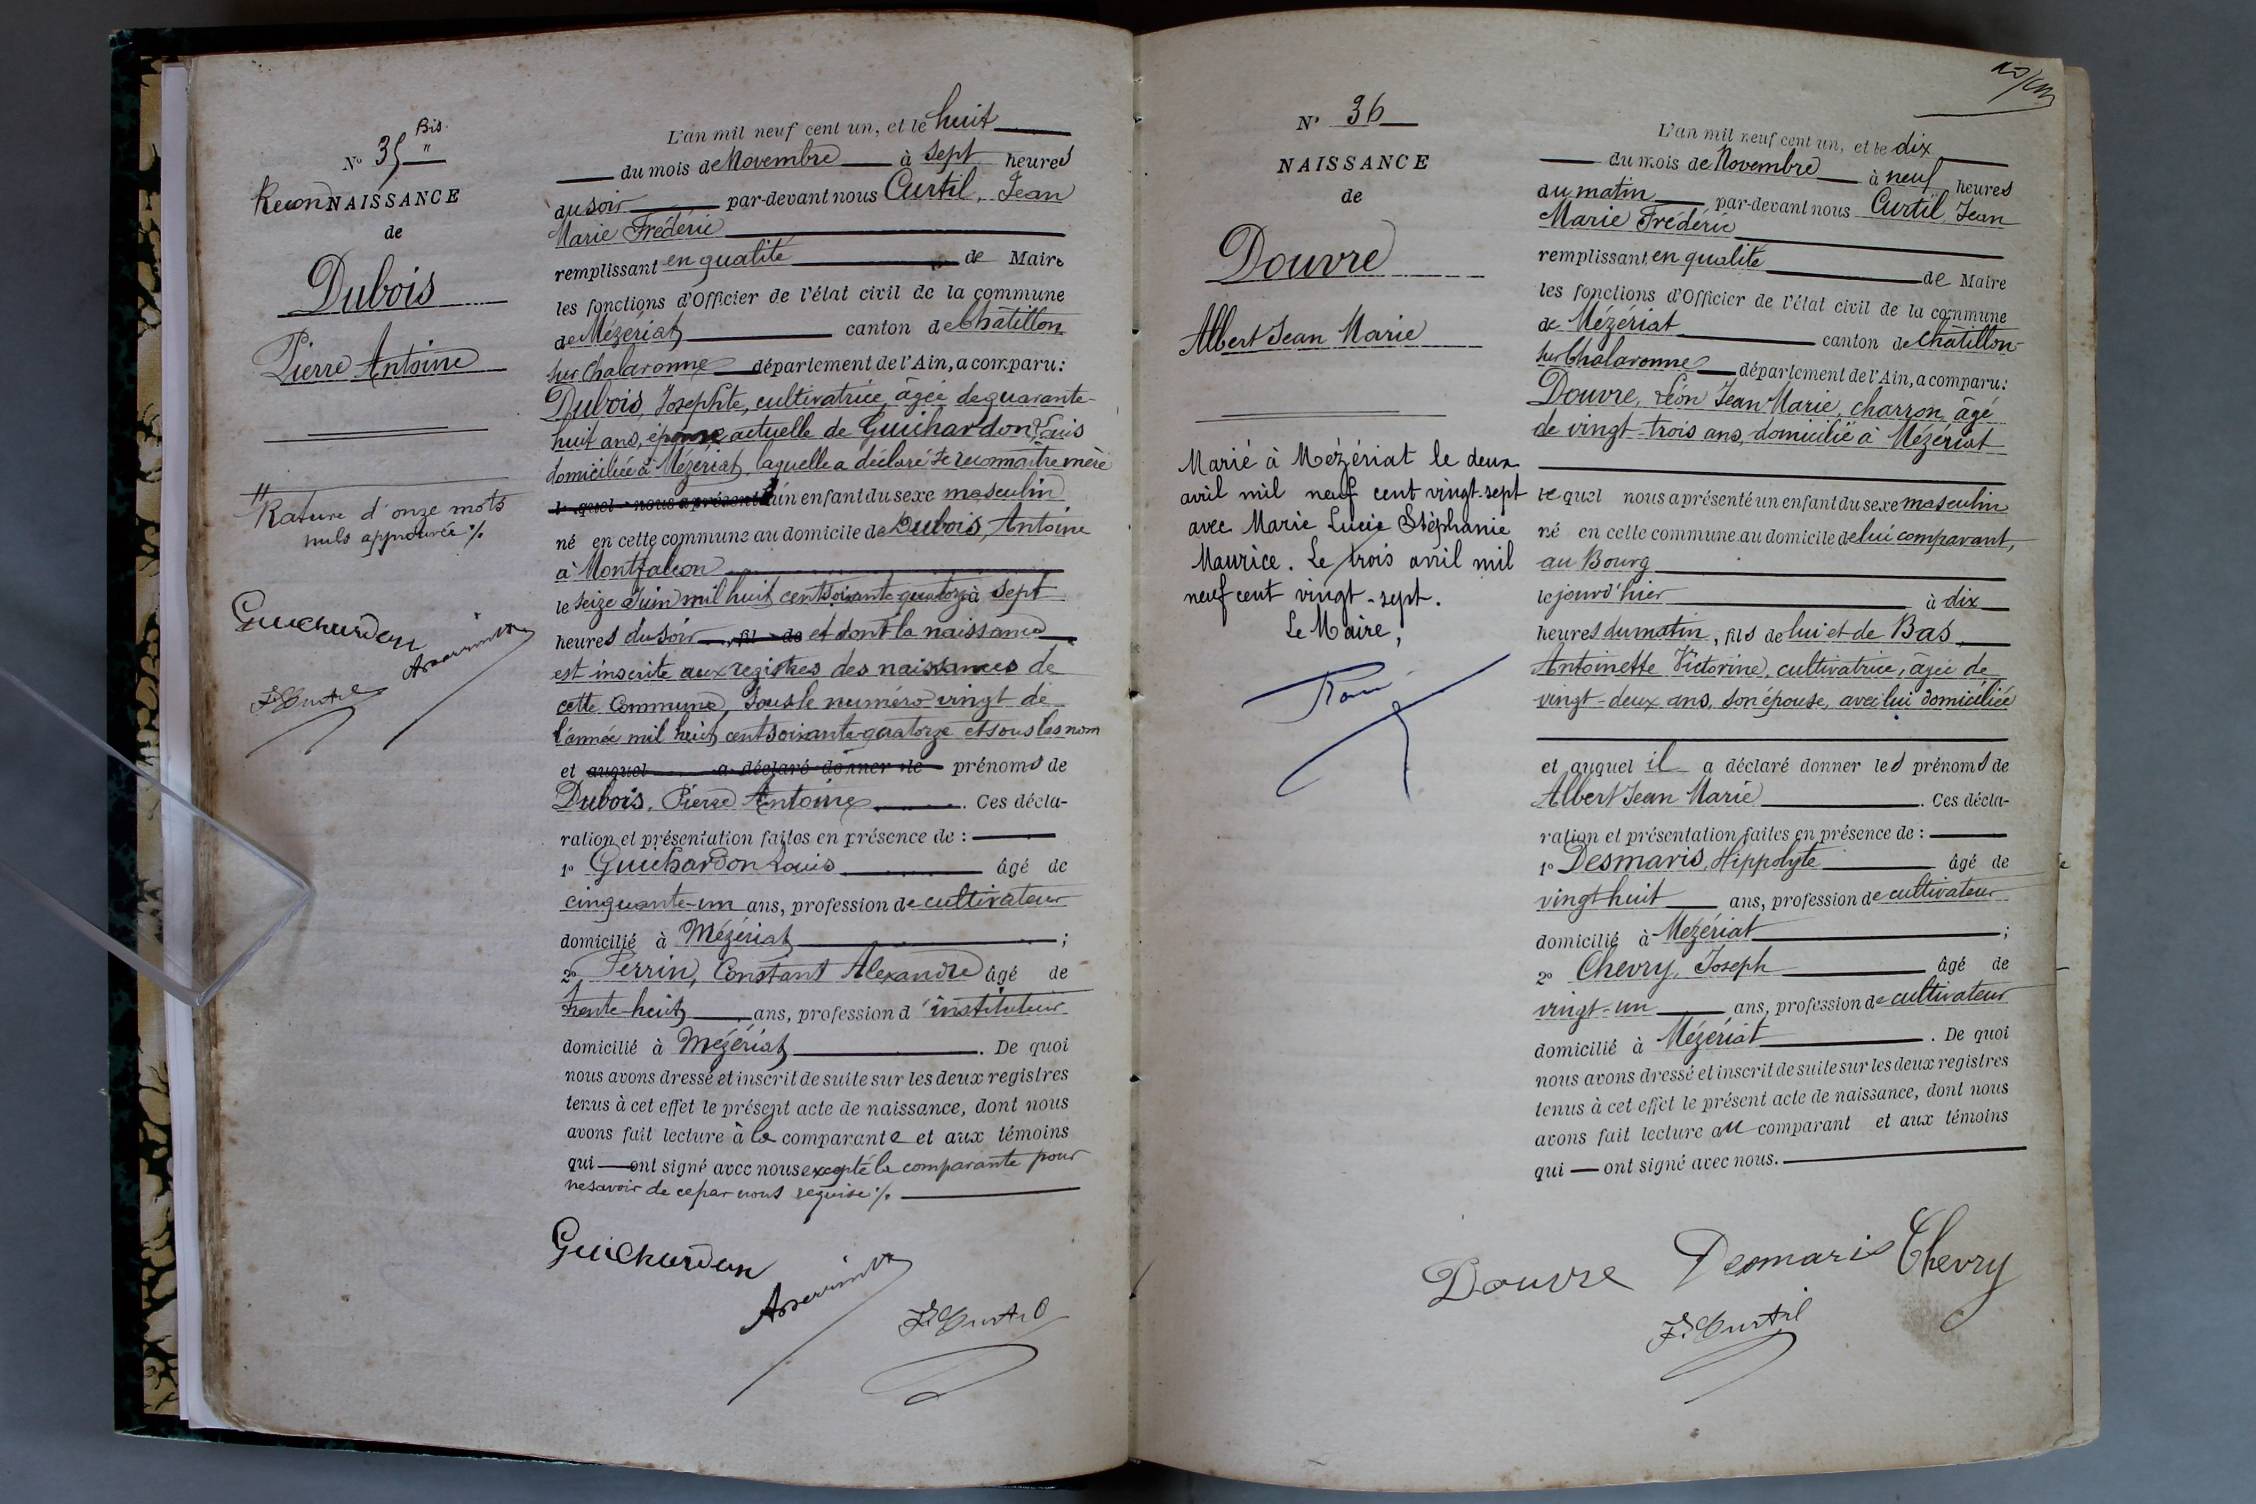 Bis
N° 35 "
ReconNAISSANCE
de
Dubois
Pierre Antoine
Rature d'onze mots
nuls approuvée ./.
Guichardon
F. Curtil
L'an mil neuf cent un, et le huit
du mois de Novembre à sept heures
du soir par-devant nous Curtil, Jean
Marie Frédéric
remplissant en qualité de Maire
les fonctions d'Officier de l'état civil de la commune
de Mézériat canton de Châtillon
sur Chalaronne département de l'Ain, a comparu:
Dubois, Josephte, cultivatrice, âgée de quarante-
huit ans, épouse actuelle de Guichardon Louis
domiciliée à Mézériat, laquelle a déclaré se reconnaître mère
lequel nous a présenté d'un enfant du sexe masculin
né en cette commune au domicile de Dubois, Antoine
à Montfalcon
le seize Juin mil huit cent soixante-quatorze à sept
heures du soir, fil de et dont la naissance
est inscrite aux registres des naissances de
cette Commune, sous le numéro vingt de
l'année mil huit cent soixante-quatorze et sous les nom
et auquel a déclaré donner le prénoms de
Dubois, Pierre Antoine. Ces décla-
ration et présentation faites en présence de :
1° Guichardon Louis âgé de
cinquante-un ans, profession de cultivateur
domicilié à Mézériat ;
2° Perrin, Constant Alexandre âgé de
trente-huit ans, profession d'instituteur
domicilié à Mézériat. De quoi
nous avons dressé et inscrit de suite sur les deux registres
tenus à cet effet le présent acte de naissance, dont nous
avons fait lecture à la comparante et aux témoins
qui ont signé avec nous excepté la comparante pour
ne savoir de ce par nous requise ./.
Guichardon
F. Curtil
N° 36
NAISSANCE
de
Douvre
Albert Jean Marie
Marié à Mézériat le deux
avril mil neuf cent vingt-sept
avec Marie Lucie Stéphanie
Maurice. Le trois avril mil
neuf cent vingt-sept.
Le Maire,
L'an mil neuf cent un, et le dix
du mois de Novembre à neuf heures
du matin par-devant nous Curtil, Jean
Marie Frédéric
remplissant en qualité de Maire
les fonctions d'Officier de l'état civil de la commune
de Mézériat canton de Châtillon-
sur Chalaronne département de l'Ain, a comparu:
Douvre, Léon Jean Marie, charron, âgé
de vingt-trois ans, domicilié à Mézériat
lequel nous a présenté un enfant du sexe masculin
né en cette commune au domicile de lui comparant,
au Bourg
le jourd'hier à dix
heures du matin, fils de lui et de Bas,
Antoinette Victorine, cultivatrice, âgée de
vingt-deux ans, son épouse, avec lui domiciliée
et auquel il a déclaré donner les prénoms de
Albert Jean Marie. Ces décla-
ration et présentation faites en présence de :
1° Desmaris, Hippolyte âgé de
vingt huit ans, profession de cultivateur
domicilié à Mézériat ;
2° Chevry, Joseph âgé de
vingt-un ans, profession de cultivateur
domicilié à Mézériat. De quoi
nous avons dressé et inscrit de suite sur les deux registres
tenus à cet effet le présent acte de naissance, dont nous
avons fait lecture au comparant et aux témoins
qui ont signé avec nous.
Douvre Desmaris Chevry
F. Curtil